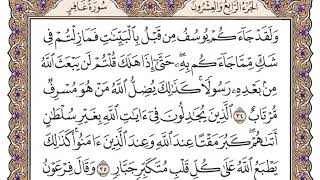 الجزء الرابع والعشرون سورة غافر
وَلَقَدْ جَآءَكُمْ يُوسُفُ مِن قَبْلُ بِٱلْبَيِّنَٰتِ فَمَا زِلْتُمْ فِى
شَكٍّ مِّمَّا جَآءَكُم بِهِۦ حَتَّىٰٓ إِذَا هَلَكَ قُلْتُمْ لَن يَبْعَثَ ٱللَّهُ
مِنۢ بَعْدِهِۦ رَسُولًا كَذَٰلِكَ يُضِلُّ ٱللَّهُ مَنْ هُوَ مُسْرِفٌ
مُّرْتَابٌ ٣٤ ٱلَّذِينَ يُجَٰدِلُونَ فِىٓ ءَايَٰتِ ٱللَّهِ بِغَيْرِ سُلْطَٰنٍ
أَتَىٰهُمْ كَبُرَ مَقْتًا عِندَ ٱللَّهِ وَعِندَ ٱلَّذِينَ ءَامَنُوا۟ كَذَٰلِكَ
يَطْبَعُ ٱللَّهُ عَلَىٰ كُلِّ قَلْبِ مُتَكَبِّرٍ جَبَّارٍ ٣٥ وَقَالَ فِرْعَوْنُ